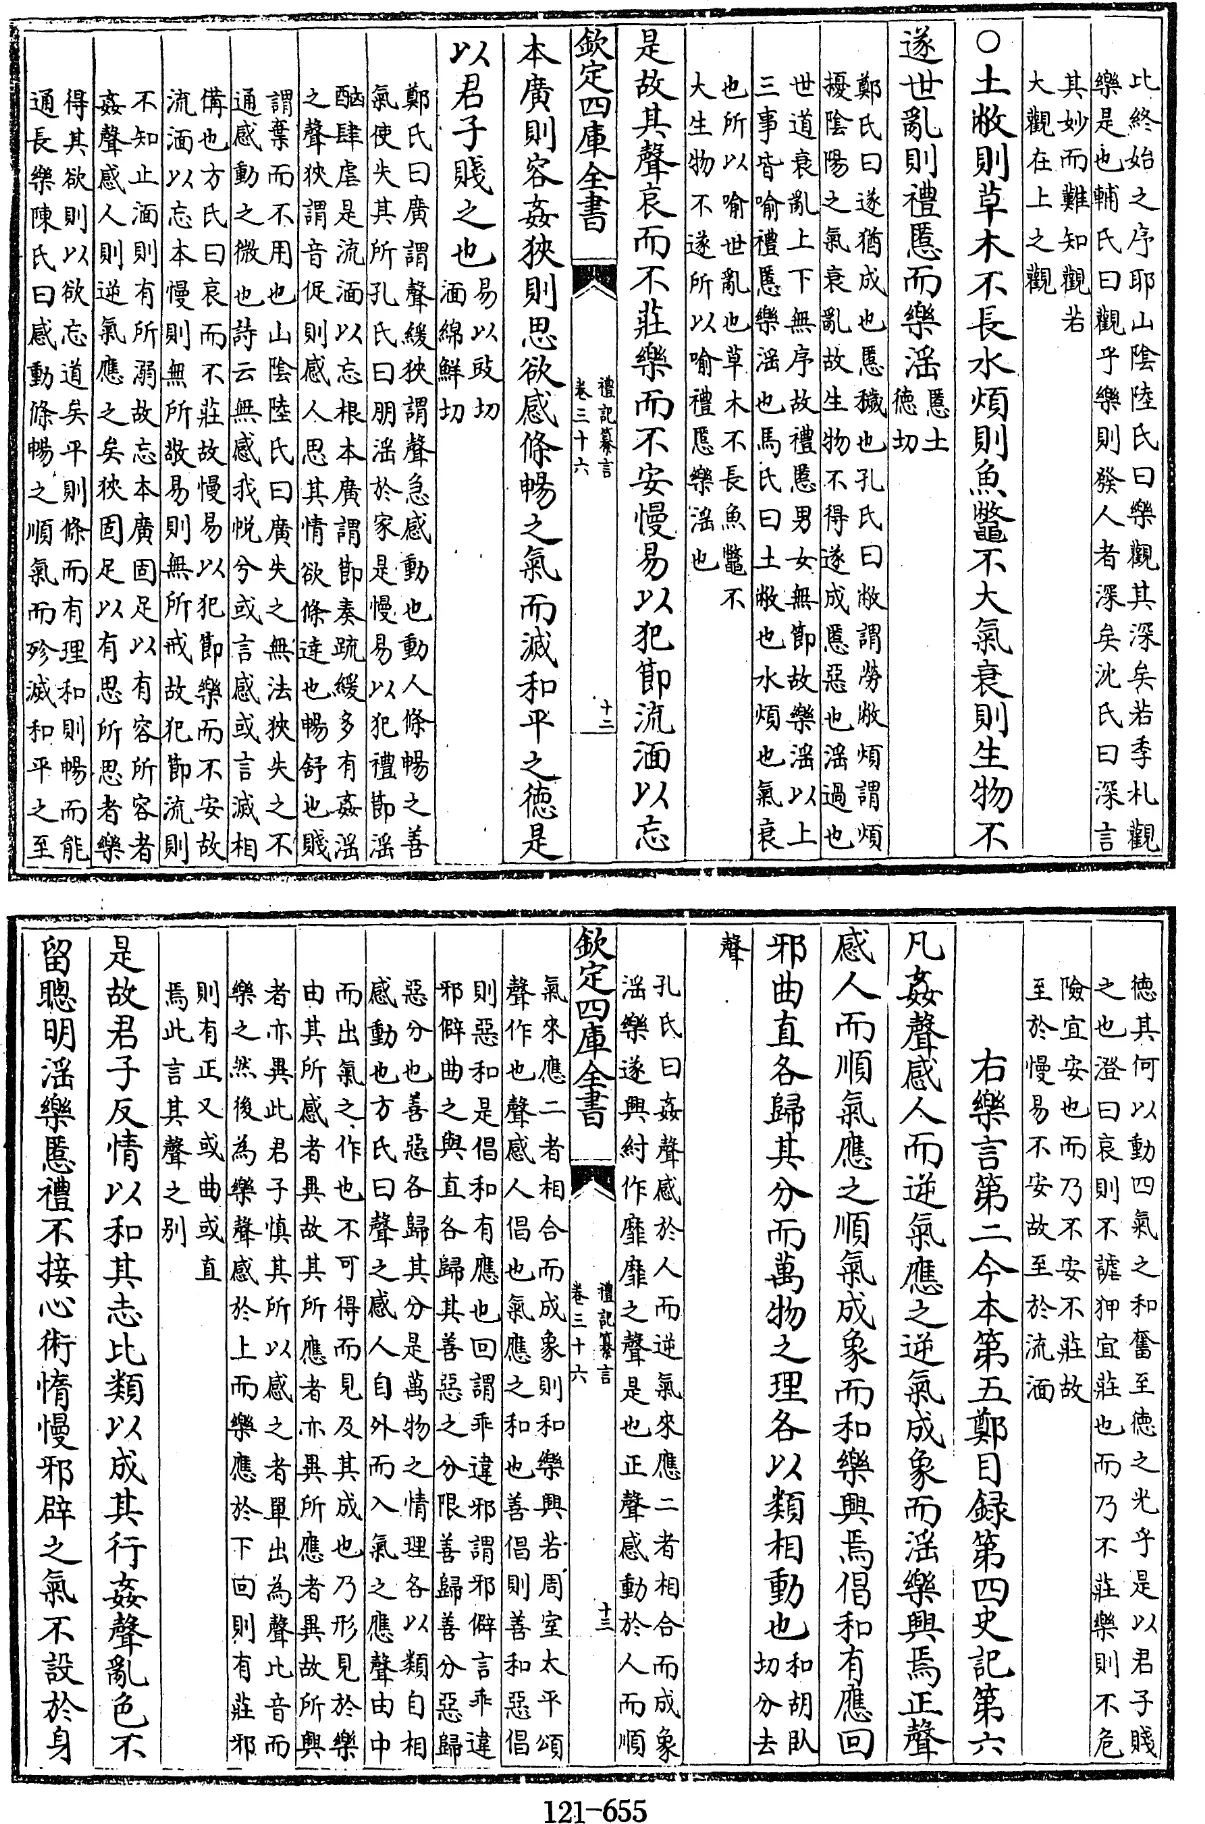 比終始之序耶山陰陸氏曰樂觀其深矣若季札觀
樂是也輔氏曰觀乎樂則發人者深矣沈氏曰深言
其妙而難知觀若
大觀在上之觀
○土敝則草木不長水煩則魚鼈不大氣衰則生物不
遂世亂則禮慝而樂淫
慝土
德切
鄭氏曰遂猶成也慝穢也孔氏曰敝謂勞敝煩謂煩
擾陰陽之氣衰亂故生物不得遂成慝惡也淫過也
世道衰亂上下無序故禮慝男女無節故樂淫以上
三事皆喻禮慝樂淫也馬氏曰土敝也水煩也氣衰
也所以喻世亂也草木不長魚鼈不
大生物不遂所以喻禮慝樂淫也
是故其聲哀而不莊樂而不安慢易以犯節流湎以忘
欽定四庫全書
禮記纂言
卷三十六
十二
本廣則容姦狹則思欲感條暢之氣而滅和平之德是
以君子賤之也
易以豉切
湎綿鮮切
鄭氏曰廣謂聲緩狹謂聲急感動也動人條暢之善
氣使失其所孔氏曰朋淫於家是慢易以犯禮節淫
酗肆虐是流湎以忘根本廣謂節奏疏緩多有姦淫
之聲狹謂音促則感人思其情欲條達也暢舒也賤
謂棄而不用也山陰陸氏曰廣失之無法狹失之不
通感動之微也詩云無感我帨兮或言感或言滅相
備也方氏曰哀而不莊故慢易以犯節樂而不安故
流湎以忘本慢則無所敬易則無所戒故犯節流則
不知止湎則有所溺故忘本廣固足以有容所容者
姦聲感人則逆氣應之矣狹固足以有思所思者樂
得其欲則以欲忘道矣平則條而有理和則暢而能
通長樂陳氏曰感動條暢之順氣而殄滅和平之至
德其何以動四氣之和奮至德之光乎是以君子賤
之也澄曰哀則不謔狎宜莊也而乃不莊樂則不危
險宜安也而乃不安不莊故
至於慢易不安故至於流湎
右樂言第二今本第五鄭目録第四史記第六
凡姦聲感人而逆氣應之逆氣成象而淫樂興焉正聲
感人而順氣應之順氣成象而和樂興焉倡和有應回
邪曲直各歸其分而萬物之理各以類相動也
和胡臥
切分去
聲
孔氏曰姦聲感於人而逆氣來應二者相合而成象
淫樂遂興紂作靡靡之聲是也正聲感動於人而順
欽定四庫全書
禮記纂言
卷三十六
十三
氣來應二者相合而成象則和樂興若周室太平頌
聲作也聲感人倡也氣應之和也善倡則善和惡倡
則惡和是倡和有應也回謂乖違邪謂邪僻言乖違
邪僻曲之與直各歸其善惡之分限善歸善分惡歸
惡分也善惡各歸其分是萬物之情理各以類自相
感動也方氏曰聲之感人自外而入氣之應聲由中
而出氣之作也不可得而見及其成也乃形見於樂
由其所感者異故其所應者亦異所應者異故所興
者亦異此君子慎其所以感之者單出為聲比音而
樂之然後為樂聲感於上而樂應於下回則有莊邪
則有正又或曲或直
焉此言其聲之别
是故君子反情以和其志比類以成其行姦聲亂色不
留聰明淫樂慝禮不接心術惰慢邪辟之氣不設於身
121-655